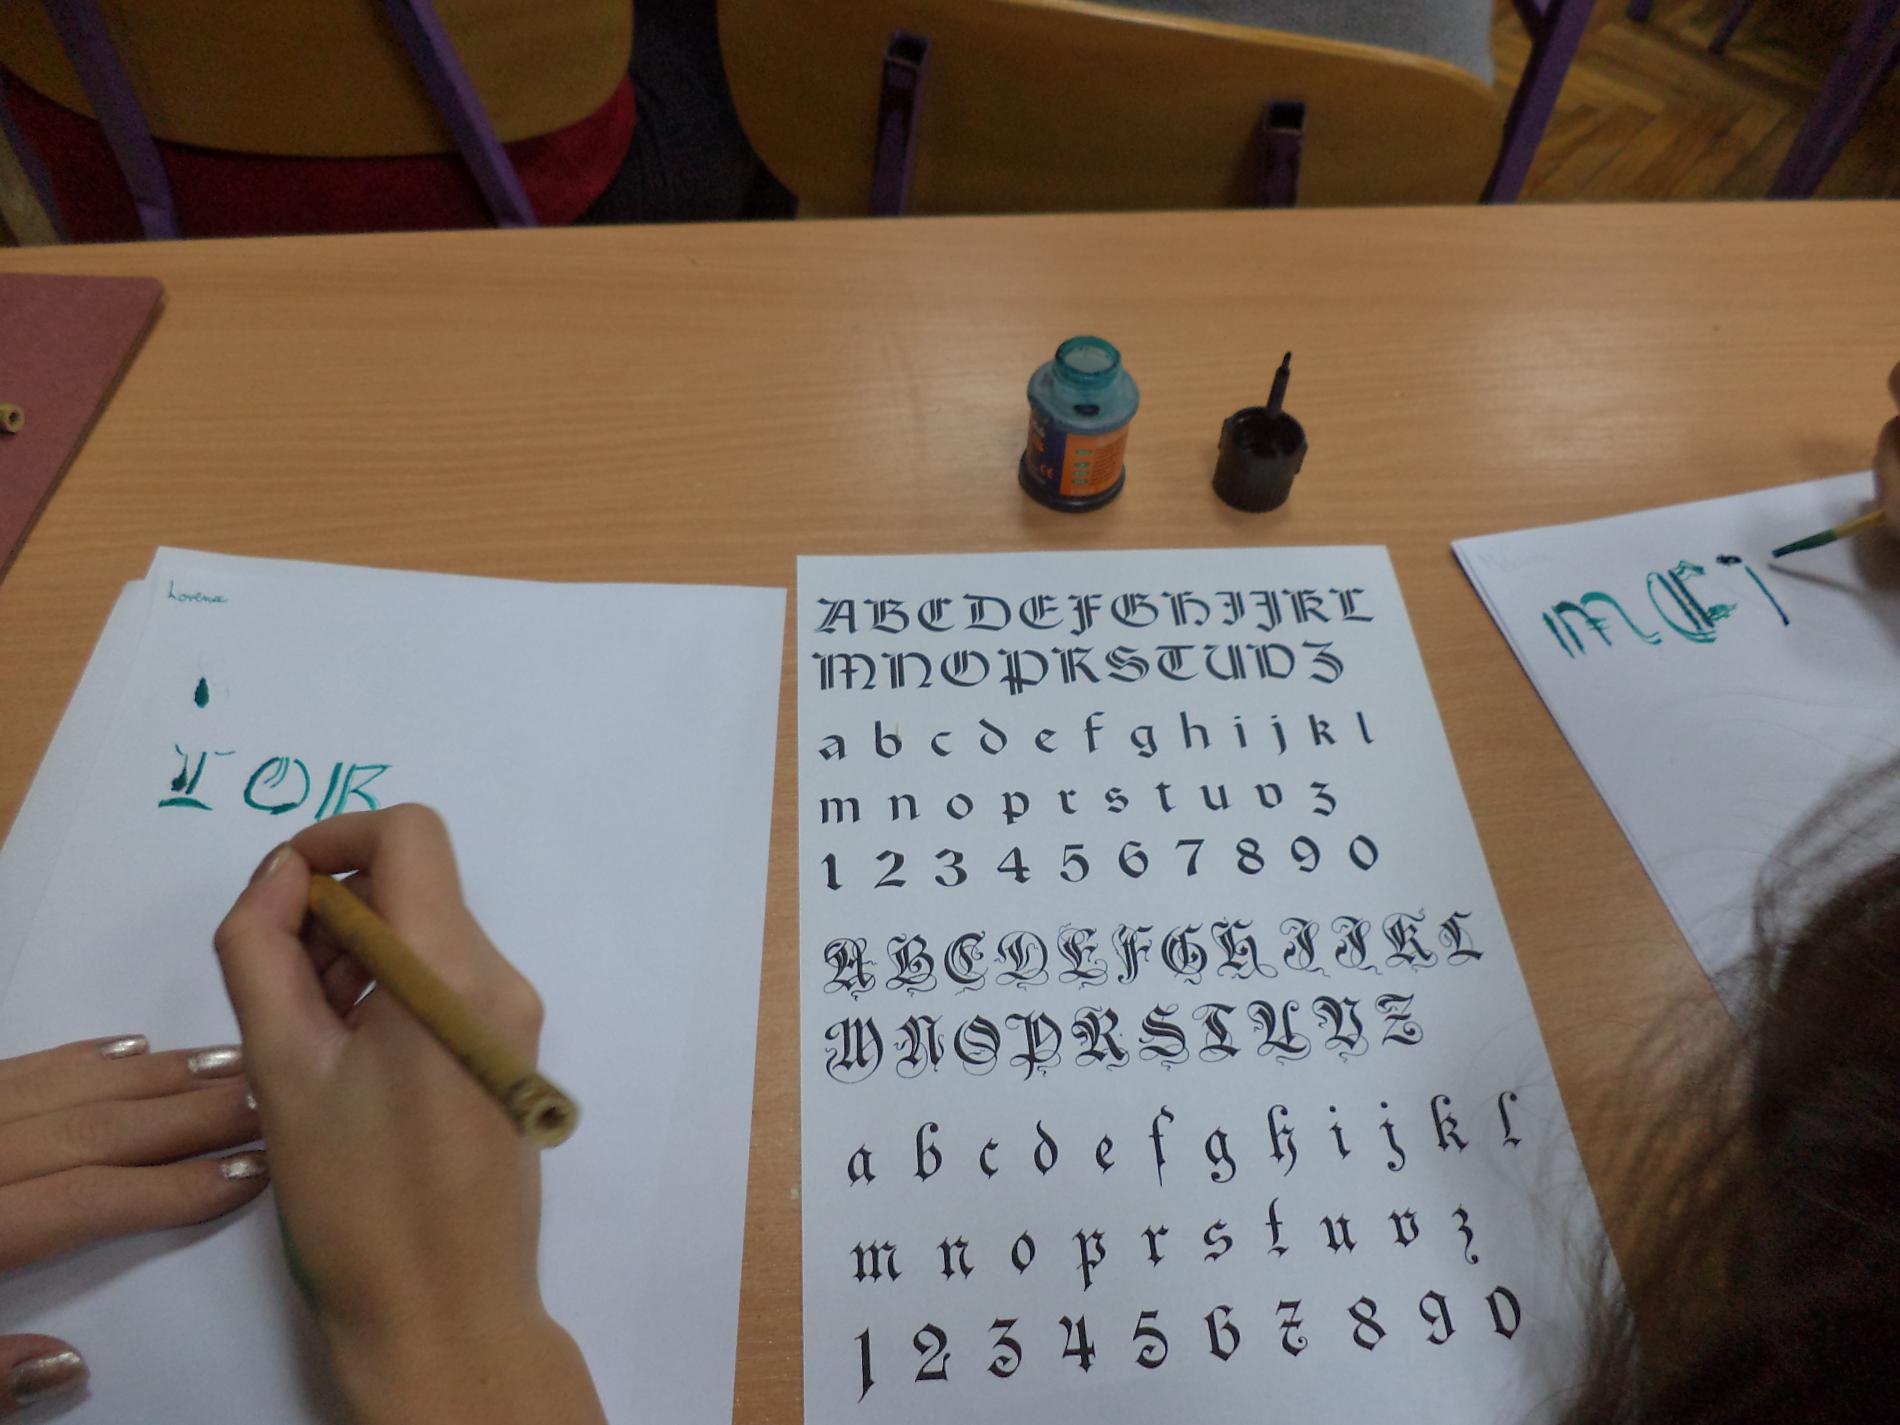 Lorena
LOR
ABCDEFGHIJKL
MNOPRSTUVZ
a b c d e f g h i j k l
m n o p r s t u v z
1 2 3 4 5 6 7 8 9 0
ABCDEFGHIJKL
MNOPRSTUVZ
a b c d e f g h i j k l
m n o p r s t u v z
1 2 3 4 5 6 7 8 9 0